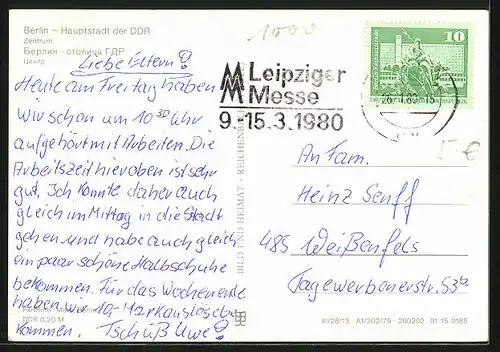 Berlin – Hauptstadt der DDR
Zentrum
Берлин - столица ГДР
Центр
Liebe Eltern!
Heute am Freitag haben
wir schon um 10³⁰ Uhr
aufgehört mit Arbeiten. Die
Arbeitszeit hier oben ist sehr
gut. Ich konnte daher auch
gleich im Mittag in die Stadt
gehen und habe auch gleich
ein paar schöne Halbschuhe
bekommen. Für das Wochenende
haben wir 10,- Mark auslösche
kommen. Tschüß Uwe!
DDR 0,20 M
BILD UND HEIMAT · REICHENB
1000
Leipziger
Messe
9.-15.3.1980
10
5 €
An Fam.
Heinz Senff
485 Weißenfels
Tagewerbenerstr. 53b
III/26/13 A1/202/79 280202 01 15 0185